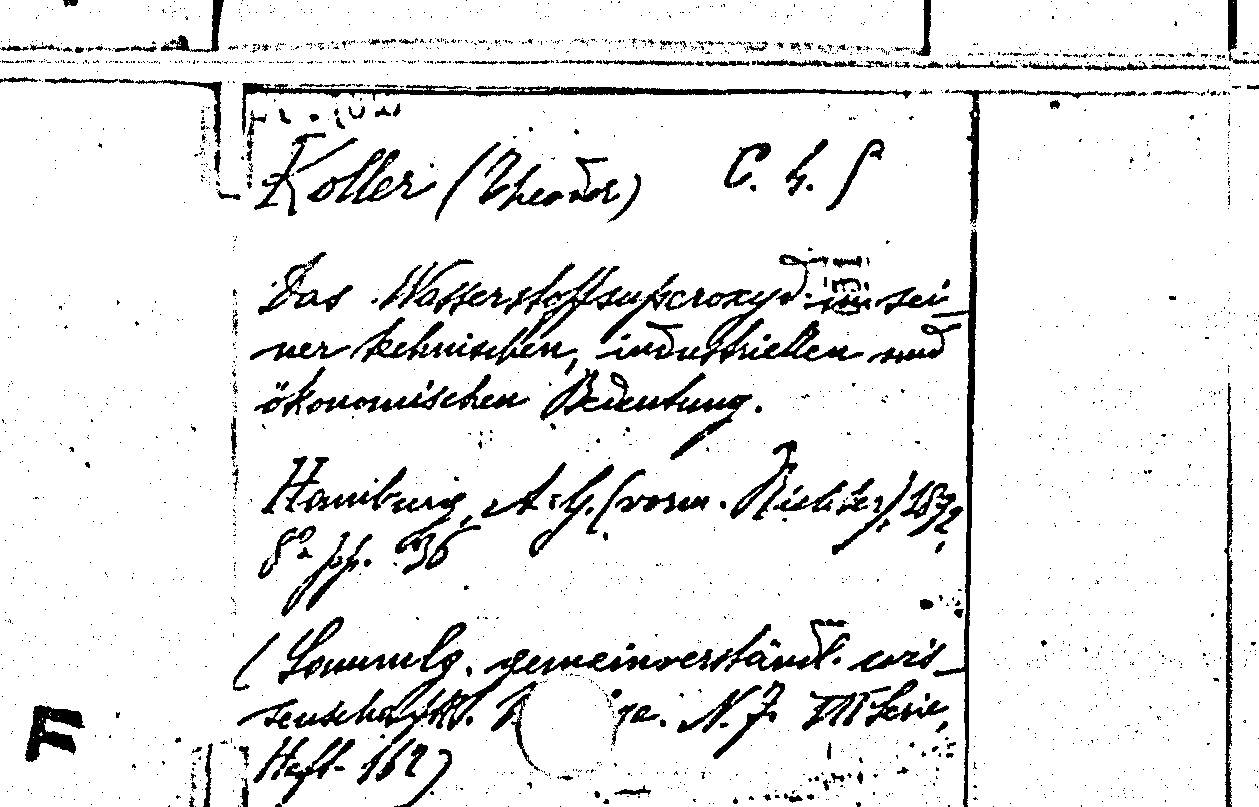 Koller (Theodor) C. h. f
Das Wasserstoffsuperoxyd in sei-
ner technischen, industriellen und
ökonomischen Bedeutung.
Hamburg, A.-G. (vorm. Richter), 1892,
8º pp. 36
(Sammlg. gemeinverständl. wis-
senschaftl. N. F. VII Serie,
Heft 162)
F